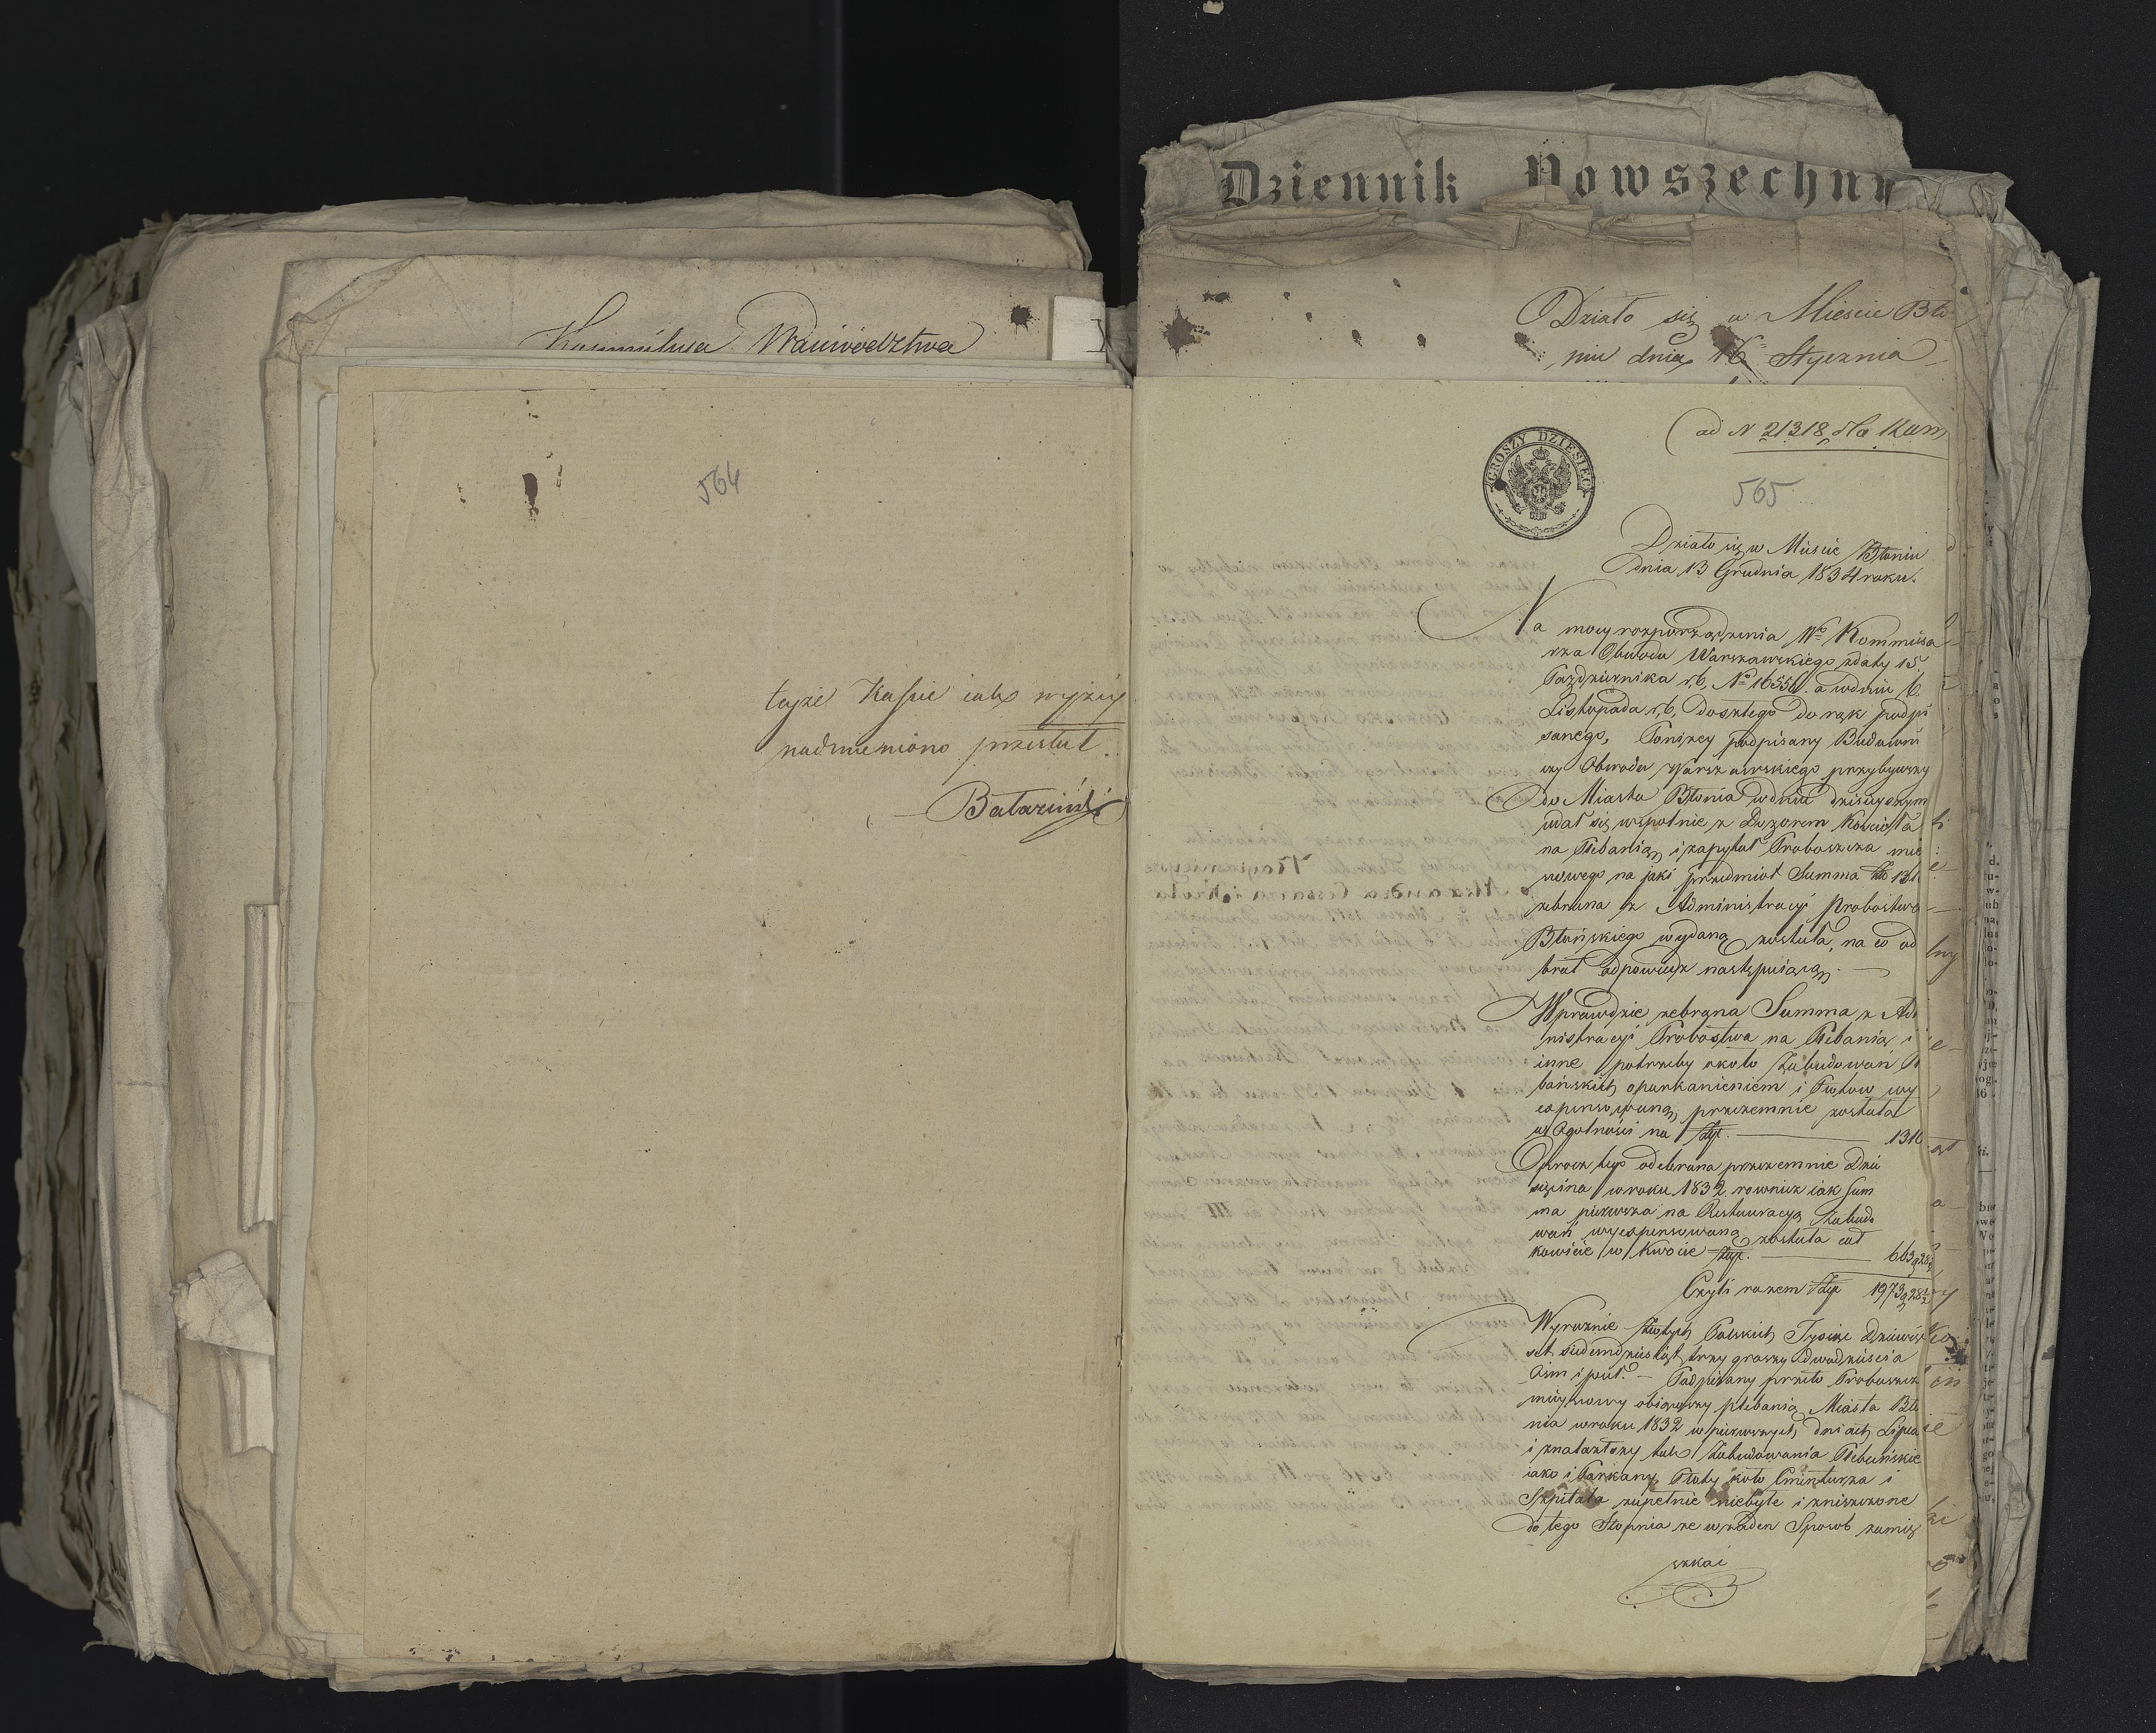 Województwa
564
tejże Kassie iak wyżey
nadmieniono przesłał.
Dziennik Powszechny
Działo się w Mieście Bło
niu dnia 16 Stycznia
ad N 21318
GROSZY DZIESIĘĆ
565
Działo się w Mieście Błoniu
dnia 13 Grudnia 1834 roku.
Na mocy rozporządzenia Wo Kommissa
rza Obwodu Warszawskiego z daty 15
Października r. b. No 16556 a w dniu 6.
Listopada r. b. doszłego do rąk podpi
sanego, Poniżey podpisany Budowni
czy Obwodu Warszawskiego przybywszy
do Miasta Błonia w dniu dzisieyszym
udał się wspólnie z Dozorem Kościoła
na Plebanią i zapytał Proboszcza miey
scowego na jaki przedmiot Summa 131
zebrana z Administracyi Probostwa
Błońskiego wydaną została, na co od
brał odpowiedz następuiącą.
Wprawdzie zebrana Summa z Adi
nistracyi Probostwa na Plebanią i
inne potrzeby około Zabudowań Pl
bańskich oparkanieniem i Płotów wy
expensowaną przezemnie została
w Ogólności na złp. 1310
Oprócz tego odebrana przezemnie Dzie
sięcina w roku 1832 rownież iak Sum
ma pierwsza na Restauracyą Zabudo
wań wyexpensowaną została cał
kowicie w Kwocie złp. 663 g 28½
Czyli razem złp 1973 g 28½
Wyraźnie złotych Polskich Tysiąc Dziewięć
set siedemdziesiąt trzy groszy dwadzieścia
ośm i puł. — Podpisany przeto Proboszcz
mieyscowy obiąwszy plebanią Miasta Bło
nia w roku 1832 w pierwszych dniach Lipca
i znalazłszy tak Zabudowania Plebańskie
iako i Parkany Płoty koło Cmentarza i
Szpitala zupełnie niebyłe i zniszczone
do tego Stopnia że w żaden Sposób zamie
szkać